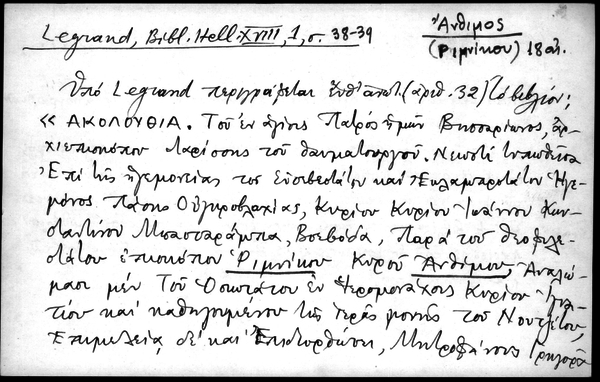 Legrand, Bibl. Hell. XVIII, 1, σ. 38-39
Ἄνθιμος
(Ριμνίκου) 18 αἰ.
Ὑπό Legrand περιγράφεται (ἀριθ. 32) τό βιβλίον;
« ΑΚΟΛΟΥΘΙΑ. Τοῦ ἐν ἁγίοις Πατρός ἡμῶν Βησσαρίωνος, ἀρ-
χιεπισκόπου Λαρίσσης τοῦ θαυματουργοῦ. Νεωστί τυπωθεῖσα
Ἐπί τῆς ἡγεμονείας τοῦ εὐσεβεστάτου καί Ἐκλαμπροτάτου Ἡγε-
μόνος πάσης Οὑγγροβλαχίας, Κυρίου Κυρίου Ἰωάννου Κων-
σταντίνου Μπασαράμπα, Βοεβόδα, Παρά τοῦ θεοφιλε-
στάτου ἐπισκόπου Ῥιμνίκου Κυροῦ Ἀνθίμου, Ἀναλώ-
μασι μέν τοῦ Ὁσιωτάτου ἐν Ἱερομονάχοις Κυρίου Ἰγνα-
τίου καί καθηγουμένου τῆς ἱερᾶς μονῆς τοῦ Νουτζέτου,
Ἐπιμελείᾳ δέ καί Ἐπιδιορθώσει, Μητροφάνους Γρηγορᾶ